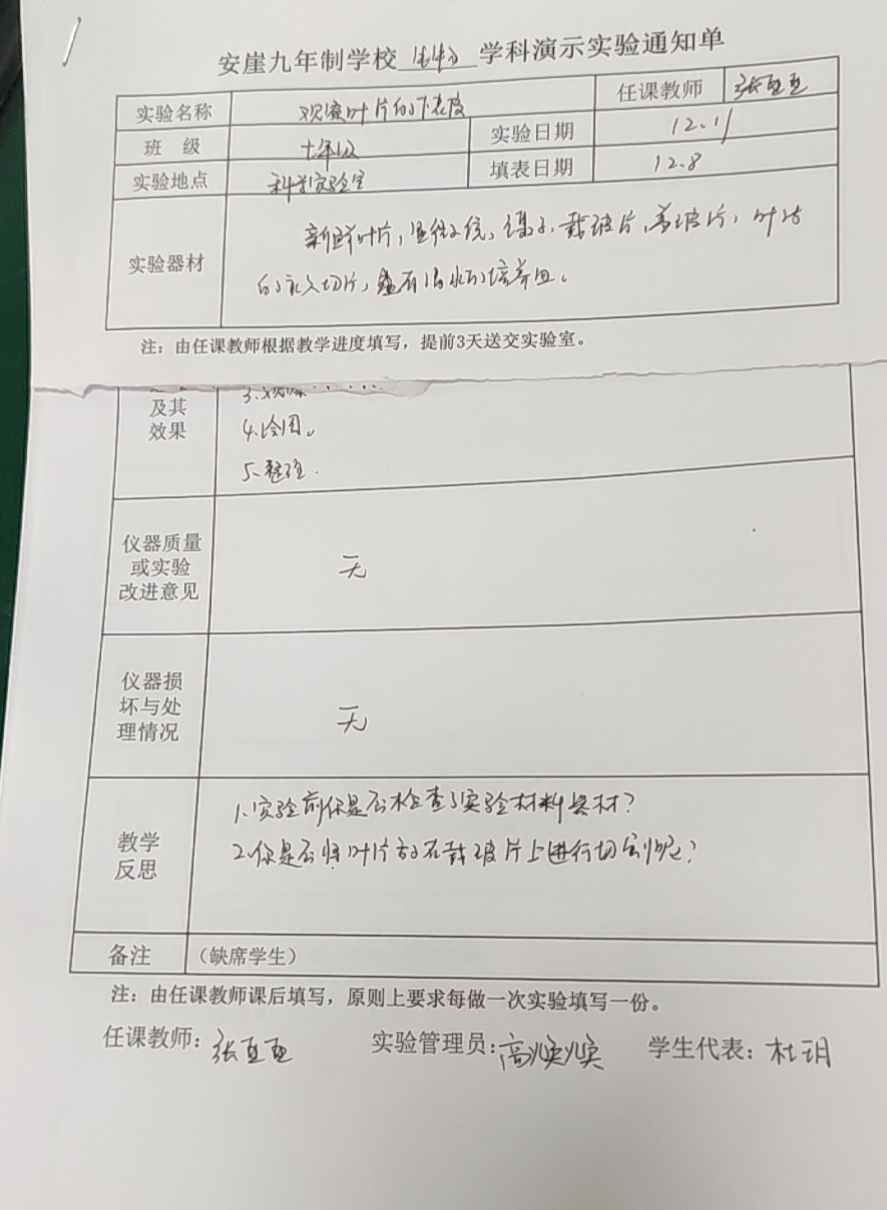 安崖九年制学校 生物 学科演示实验通知单
实验名称 观察叶片的下表皮 任课教师 张亙亙
班 级 七年级 实验日期 12.11
实验地点 科学实验室 填表日期 12.8
实验器材 新鲜叶片，显微镜，镊子，载玻片，盖玻片，叶片
的永久切片，盛有清水的培养皿。
注：由任课教师根据教学进度填写，提前3天送交实验室。
3.观察
及其
效果
4.绘图。
5.整理.
仪器质量
或实验
改进意见
无
仪器损
坏与处
理情况
无
教学
反思
1.实验前你是否检查了实验材料器材？
2.你是否将叶片放在载玻片上进行切割呢？
备注 （缺席学生）
注：由任课教师课后填写，原则上要求每做一次实验填写一份。
任课教师：张亙亙 实验管理员：高焕焕 学生代表：杜玥